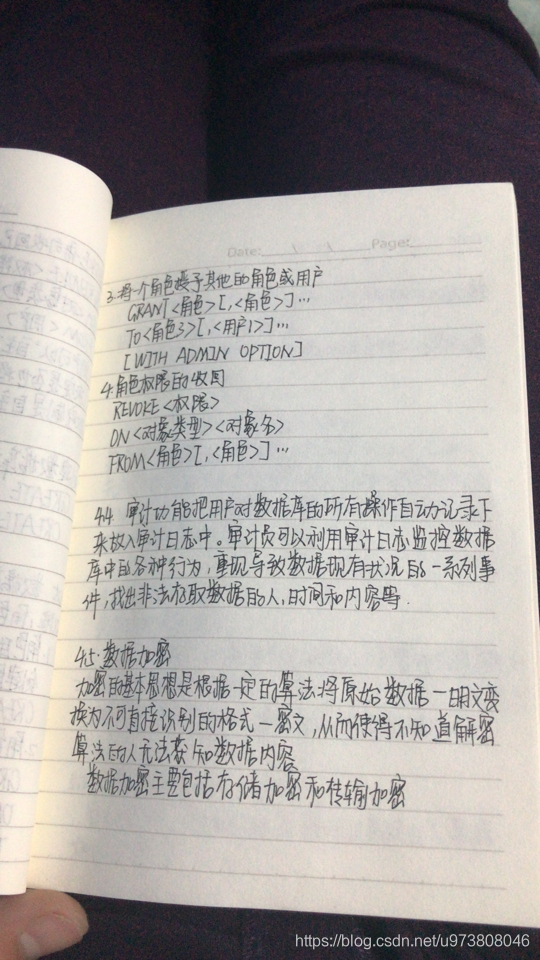 Date: \ \ Page:
3.将一个角色授予其他的角色或用户
GRANT<角色>[,<角色>]…
TO<角色3>[,<用户1>]…
[WITH ADMIN OPTION]
4.角色权限的收回
REVOKE<权限>
ON<对象类型><对象名>
FROM<角色>[,<角色>]…
4.4 审计功能把用户对数据库的所有操作自动记录下
来放入审计日志中。审计员可以利用审计日志监控数据
库中的各种行为，重现导致数据现有状况的一系列事
件，找出非法存取数据的人，时间和内容等.
4.5 数据加密
加密的基本思想是根据一定的算法将原始数据一明文变
换为不可直接识别的格式一密文，从而使得不知道解密
算法的人无法获知数据内容
数据加密主要包括存储加密和传输加密
https://blog.csdn.net/u973808046